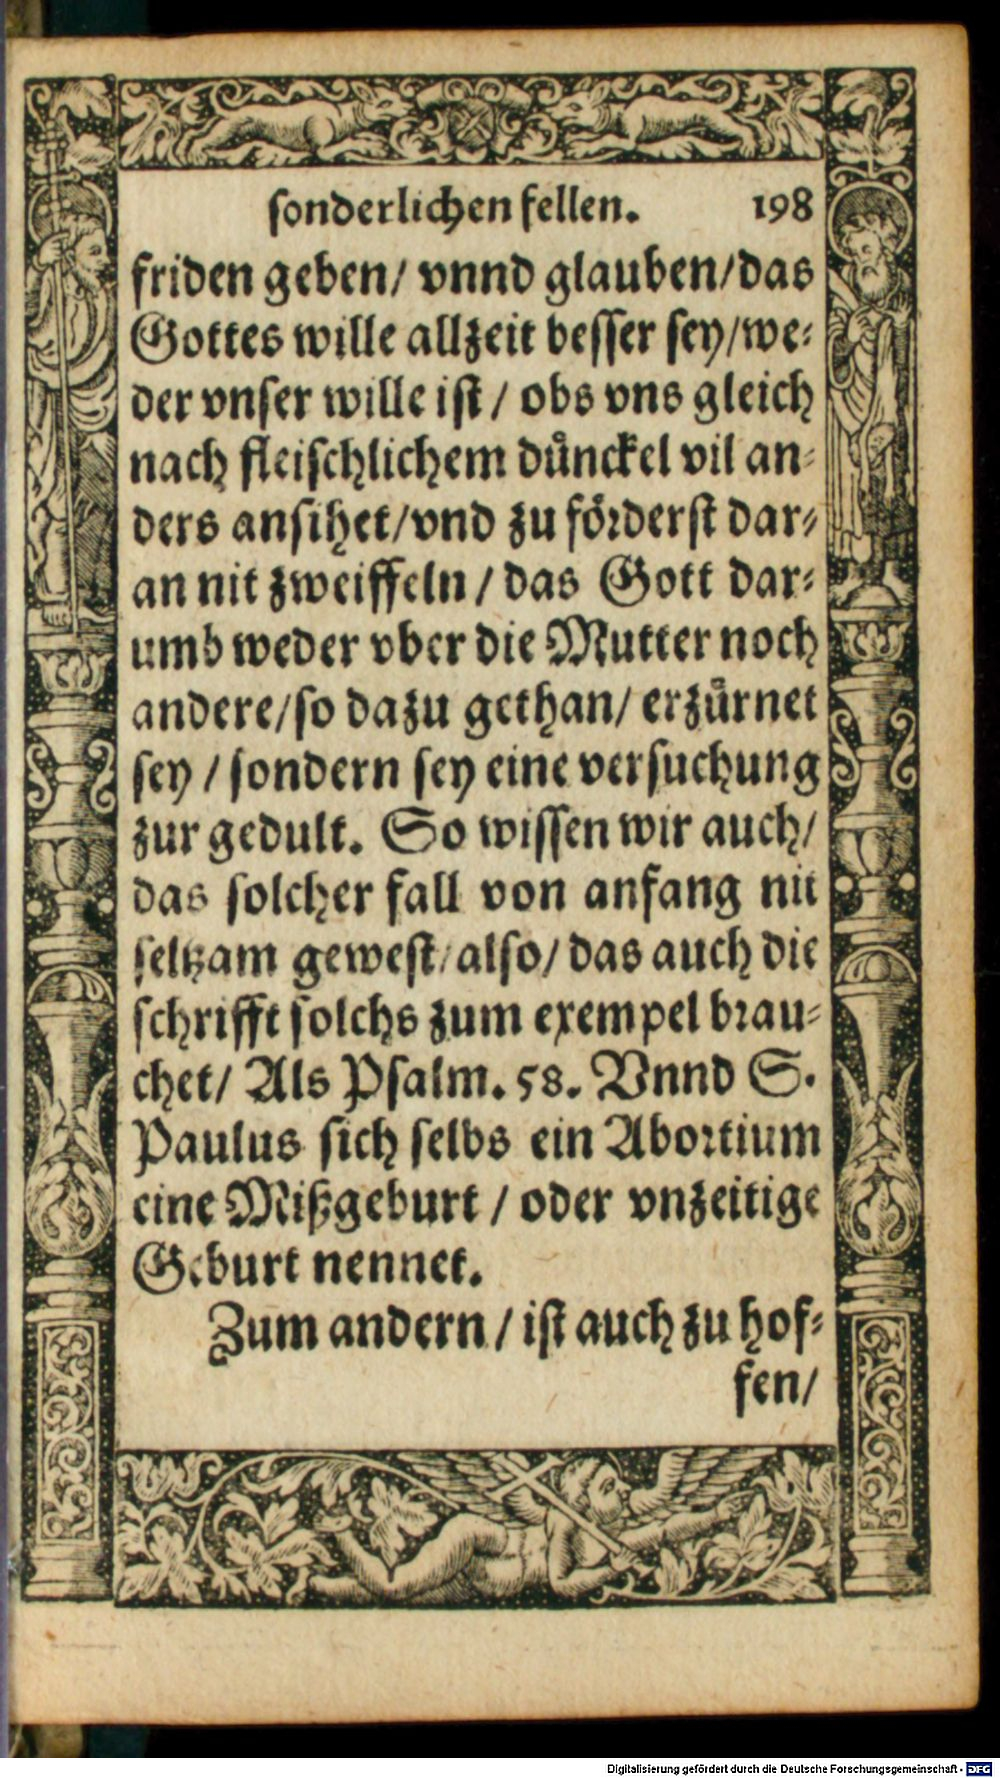 sonderlichen fellen. 198
friden geben/ vnnd glauben/das
Gottes wille allzeit besser sey/we-
der vnser wille ist / obs vns gleich
nach fleischlichem duͤnckel vil an-
ders ansihet/vnd zu foͤrderst dar-
an nit zweiffeln / das Gott dar-
umb weder vber die Mutter noch
andere/so dazu gethan/ erzuͤrnet
sey / sondern sey eine versuchung
zur gedult. So wissen wir auch/
das solcher fall von anfang nit
seltzam gewest/also/ das auch die
schrifft solchs zum exempel brau-
chet/ Als Psalm. 58. Vnnd S.
Paulus sich selbs ein Abortium
eine Mißgeburt / oder vnzeitige
Geburt nennet.
Zum andern / ist auch zu hof-
fen/
Digitalisierung gefördert durch die Deutsche Forschungsgemeinschaft - DFG